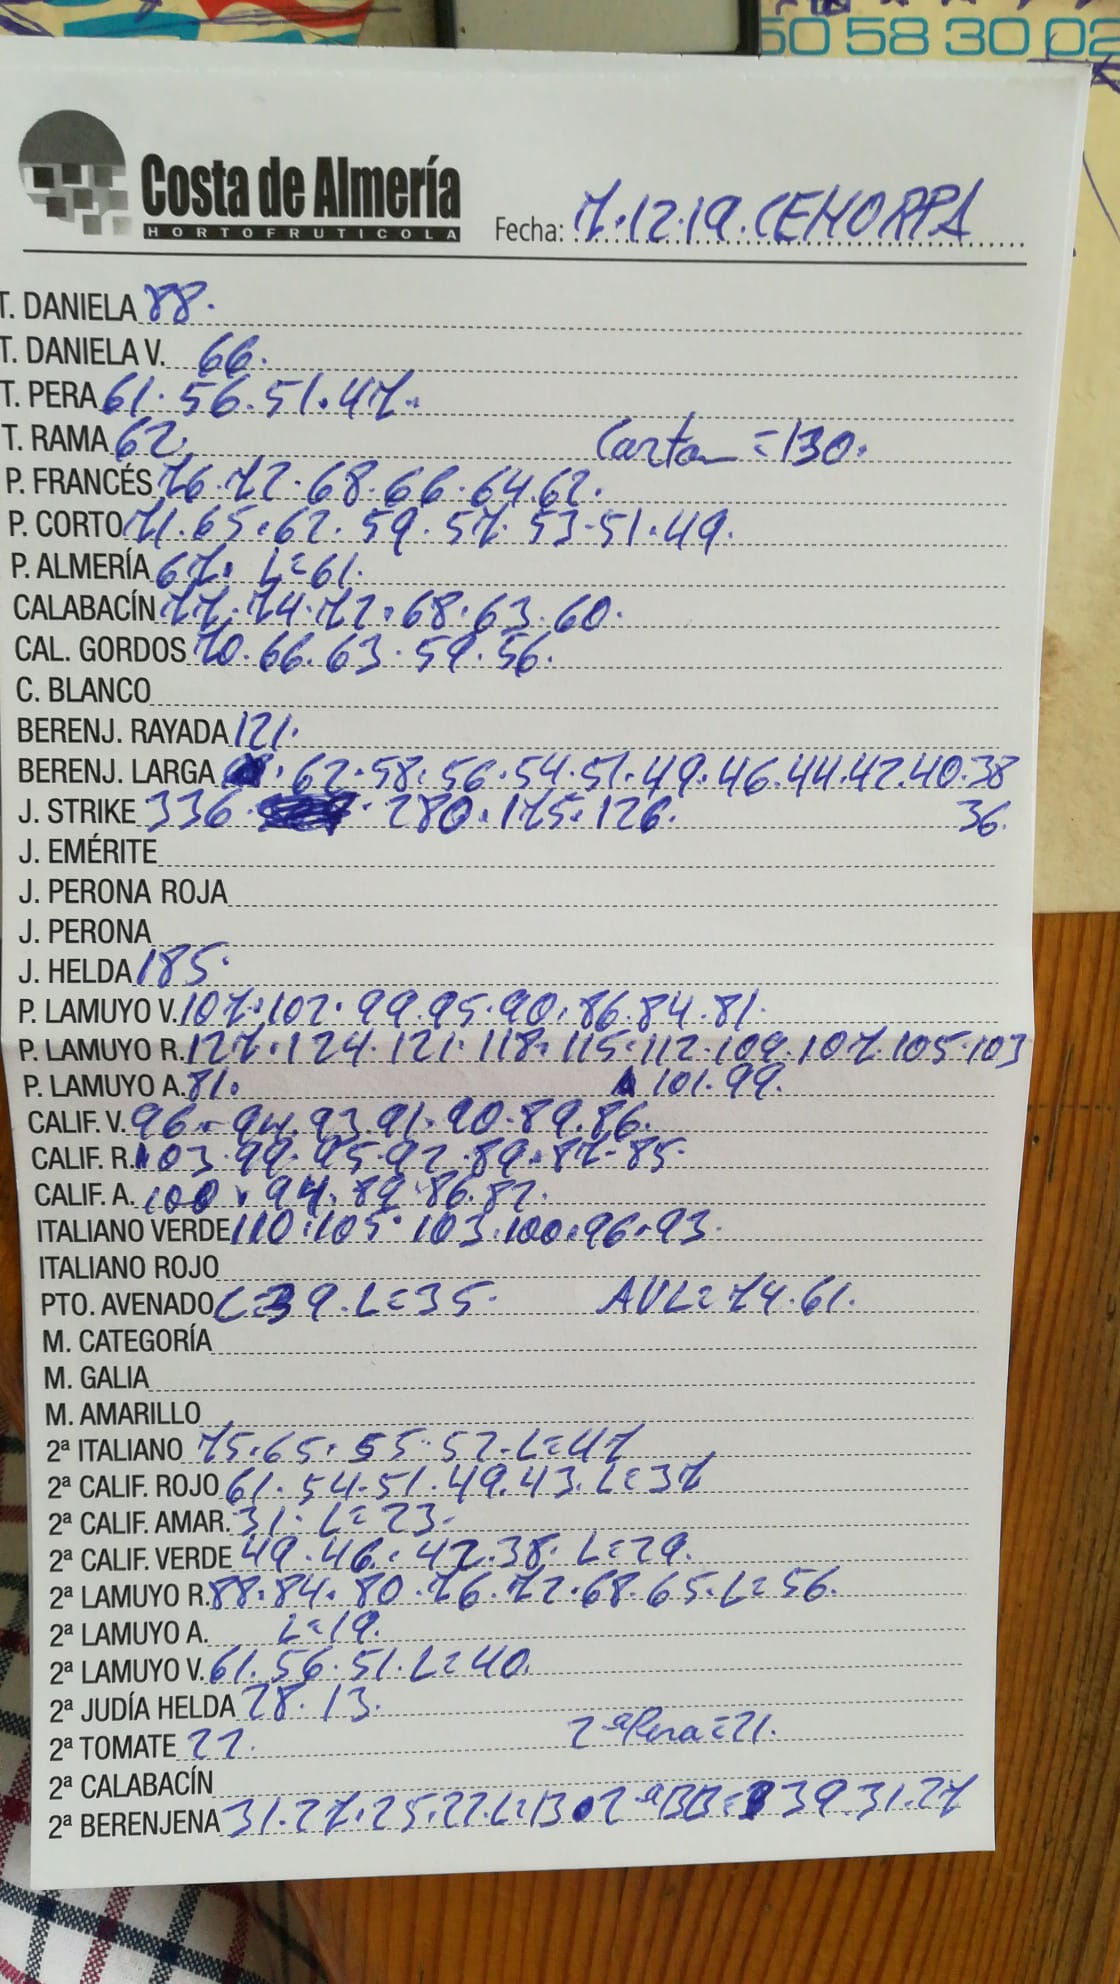 50 58 30 02
Costa de Almería
HORTOFRUTICOLA
Fecha: 7.12.19. CEHORPA
T. DANIELA 88.
T. DANIELA V. 66.
T. PERA 61.56.51.47.
T. RAMA 62. Carton = 130.
P. FRANCÉS 76.72.68.66.64.62.
P. CORTO 71.65.62.59.57.53.51.49.
P. ALMERÍA 67. L=61.
CALABACÍN 77.74.72.68.63.60.
CAL. GORDOS 70.66.63.59.56.
C. BLANCO
BERENJ. RAYADA 121.
BERENJ. LARGA .62.58.56.54.51.49.46.44.42.40.38
36.
J. STRIKE 336. .280.175.126.
J. EMÉRITE
J. PERONA ROJA
J. PERONA
J. HELDA 185.
P. LAMUYO V. 107.102.99.95.90.86.84.81.
P. LAMUYO R. 127.124.121.118.115.112.109.107.105.103
101.99.
P. LAMUYO A. 81.
CALIF. V. 96.94.93.91.90.89.86.
CALIF. R. 103.99.95.92.89.87.85.
CALIF. A. 100.94.89.86.82.
ITALIANO VERDE 110.105.103.100.96.93.
ITALIANO ROJO
PTO. AVENADO C=39.L=35. AVL=74.61.
M. CATEGORÍA
M. GALIA
M. AMARILLO
2ª ITALIANO 75.65.55.52.L=47
2ª CALIF. ROJO 61.54.51.49.43.L=37
2ª CALIF. AMAR. 31. L=23.
2ª CALIF. VERDE 49.46.42.38. L=29.
2ª LAMUYO R. 88.84.80.76.72.68.65.L=56.
2ª LAMUYO A. L=19.
2ª LAMUYO V. 61.56.51.L=40.
2ª JUDÍA HELDA 28.13.
2ª TOMATE 22. 2ª Pera=21.
2ª CALABACÍN
2ª BERENJENA 31.27.25.22.L=13.2ªBB=39.31.27